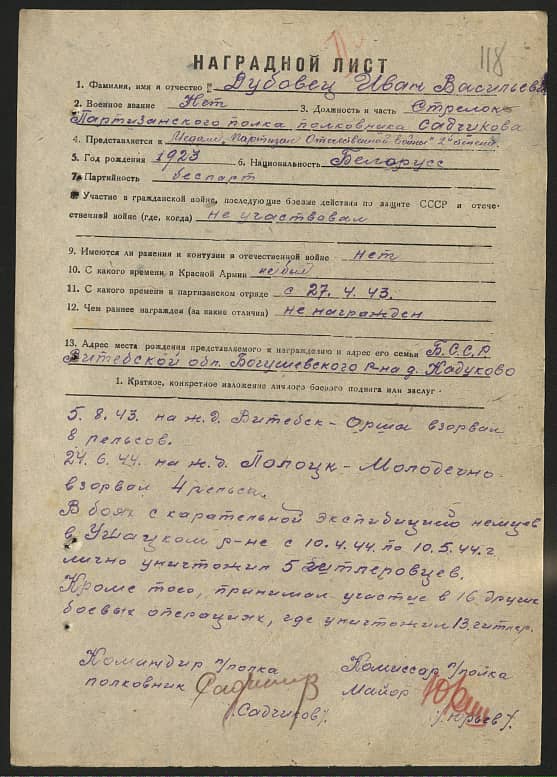 118
НАГРАДНОЙ ЛИСТ
1. Фамилия, имя и отчество Дубовец Иван Васильев
2. Военное звание Нет 3. Должность и часть Стрелок
Партизанского полка полковника Садчикова
4. Представляется к Медали „Партизан Отечественной войны" 2й степени
5. Год рождения 1923 6. Национальность Белорусс
7. Партийность беспарт
8. Участие в гражданской войне, последующие боевые действия по защите СССР и отече-
ственной войне (где, когда) не участвовал
9. Имеются ли ранения и контузии в отечественной войне нет
10. С какого времени в Красной Армии не был
11. С какого времени в партизанском отряде с 27.4.43.
12. Чем раннее награжден (за какие отличия) не награжден
13. Адрес места рождения представляемого к награждению и адрес его семьи Б.С.С.Р
Витебской обл. Богушевского р-на д. Кадуково
1. Краткое, конкретное изложение личного боевого подвига или заслуг
5.8.43. на ж.д. Витебск-Орша взорвал
8 рельсов.
24.6.44. на ж.д. Полоцк-Молодечно
взорвал 4 рельса.
В боях с карательной экспибицией немцев
в Ушацком р-не с 10.4.44. по 10.5.44.г
лично уничтожил 5 гитлеровцев.
Кроме того, принимал участие в 16 других
боевых операциях, где уничтожил 13 гитлер.
Командир п/полка Комиссар п/полка
полковник Майор
/Садчиков/. /Юрьев/.